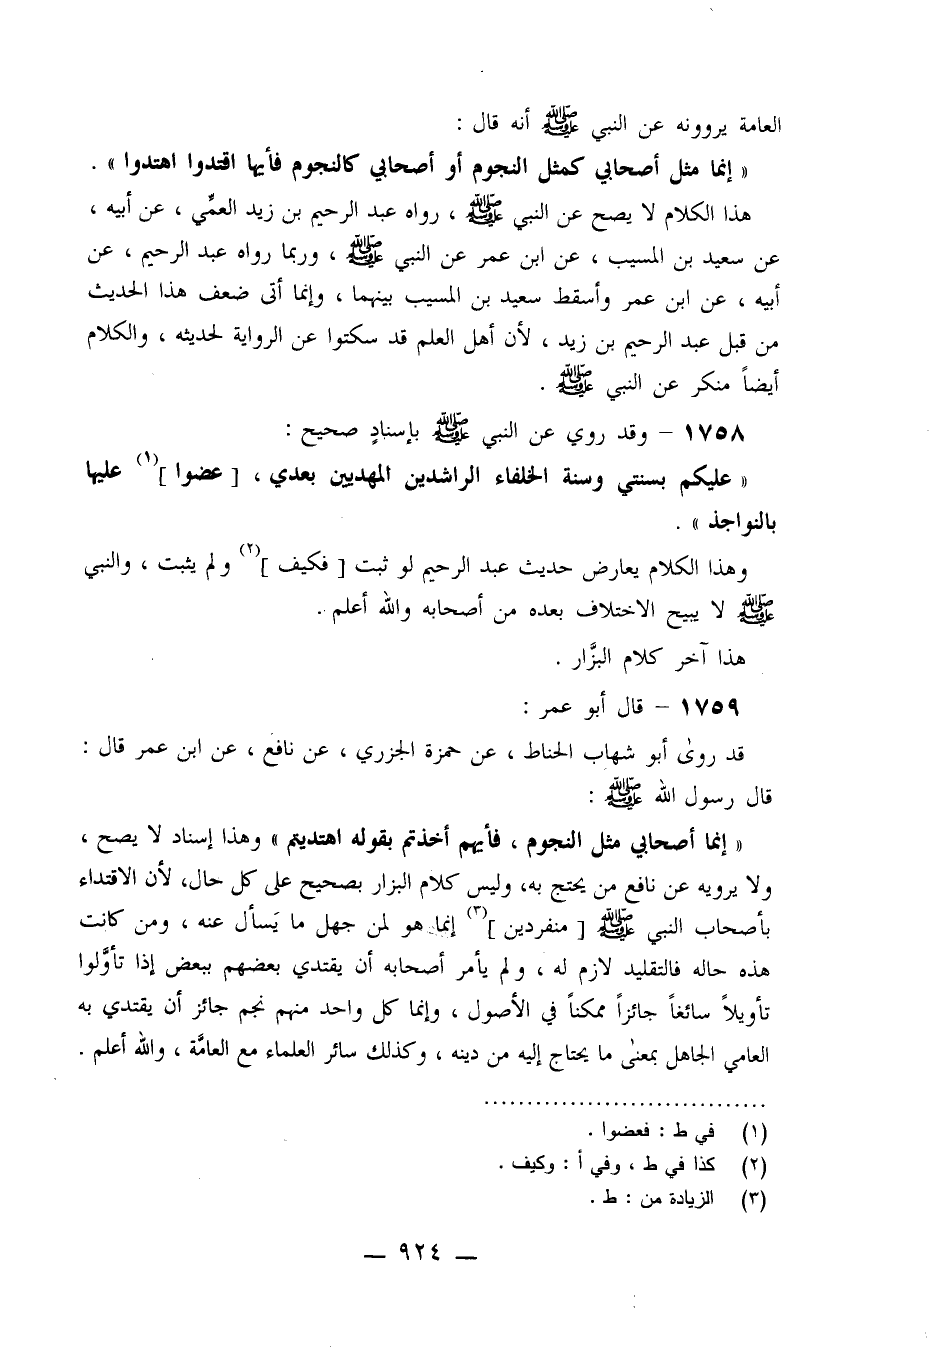 العامة يروونه عن النبي ﷺ أنه قال :
« إنما مثل أصحابي كمثل النجوم أو أصحابي كالنجوم فأيها اقتدوا اهتدوا » .
هذا الكلام لا يصح عن النبي ﷺ ، رواه عبد الرحيم بن زيد العمِّي ، عن أبيه ،
عن سعيد بن المسيب ، عن ابن عمر عن النبي ﷺ ، وربما رواه عبد الرحيم ، عن
أبيه ، عن ابن عمر وأسقط سعيد بن المسيب بينهما ، وإنما أتى ضعف هذا الحديث
من قبل عبد الرحيم بن زيد ، لأن أهل العلم قد سكتوا عن الرواية لحديثه ، والكلام
أيضاً منكر عن النبي ﷺ .
١٧٥٨ – وقد روي عن النبي ﷺ بإسنادٍ صحيح :
« عليكم بسنتي وسنة الخلفاء الراشدين المهديين بعدي ، [ عضوا ](١) عليها
بالنواجذ » .
وهذا الكلام يعارض حديث عبد الرحيم لو ثبت [ فكيف ](٢) ولم يثبت ، والنبي
ﷺ لا يبيح الاختلاف بعده من أصحابه والله أعلم .
هذا آخر كلام البزَّار .
١٧٥٩ – قال أبو عمر :
قد روىٰ أبو شهاب الحناط ، عن حمزة الجزري ، عن نافع ، عن ابن عمر قال :
قال رسول الله ﷺ :
« إنما أصحابي مثل النجوم ، فأيهم أخذتم بقوله اهتديتم » وهذا إسناد لا يصح ،
ولا يرويه عن نافع من يحتج به، وليس كلام البزار بصحيح على كل حال، لأن الاقتداء
بأصحاب النبي ﷺ [ منفردين ](٣) إنما هو لمن جهل ما يَسأل عنه ، ومن كانت
هذه حاله فالتقليد لازم له ، ولم يأمر أصحابه أن يقتدي بعضهم ببعض إذا تأوَّلوا
تأويلاً سائغاً جائزاً ممكناً في الأصول ، وإنما كل واحد منهم نجم جائز أن يقتدي به
العامي الجاهل بمعنىٰ ما يحتاج إليه من دينه ، وكذلك سائر العلماء مع العامَّة ، والله أعلم .
(١) في ط : فعضوا .
(٢) كذا في ط ، وفي أ : وكيف .
(٣) الزيادة من : ط .
— ٩٢٤ —